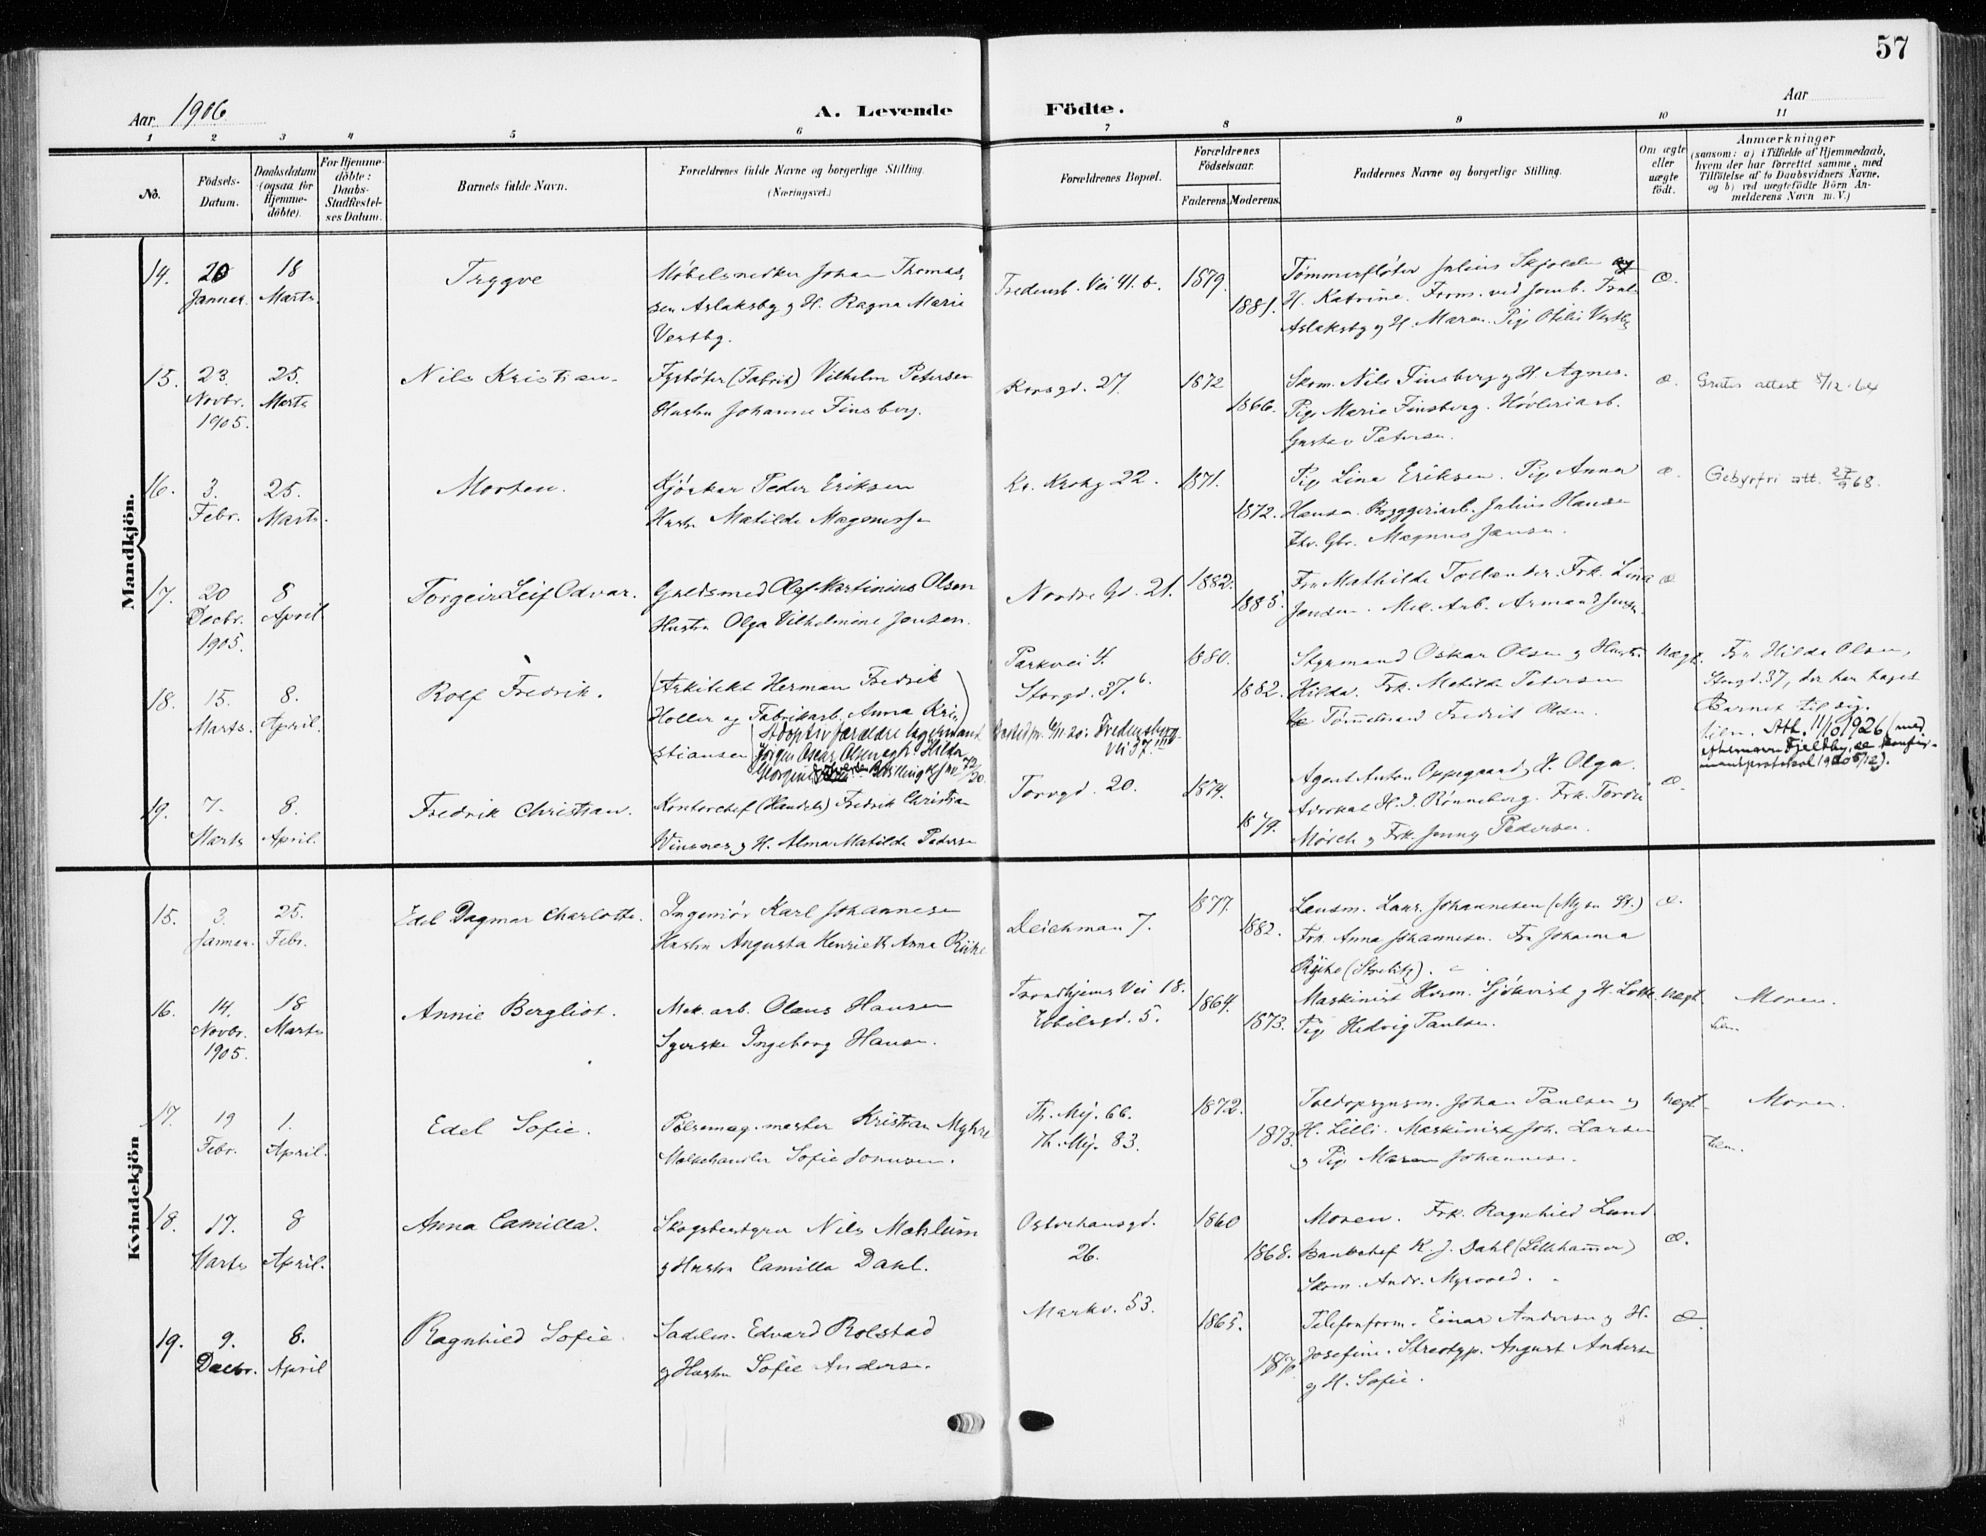 57
Aar 1906.
A. Levende Födte.
Aar
1 2 3 4 5 6 7 8 9 10 11
No.
Födsels-Datum.
Daabsdatum (ogsaa for Hjemme-döbte).
For Hjemme-döbte: Daabs-Stadfæstel-ses Datum.
Barnets fulde Navn.
Forældrenes fulde Navne og borgerlige Stilling.
(Næringsvei.)
Forældrenes Bopæl.
Forældrenes Födselsaar.
Faderens. Moderens.
Faddernes Navne og borgerlige Stilling.
Om ægte eller uægte födt.
Anmærkninger
(saasom: a) i Tilfælde af Hjemmedaab,
hvem der har forrettet samme, med
Tilföielse af to Daabsvidners Navne,
og b) ved uægtefödte Börn An-
melderens Navn m. V.)
Mandkjön.
14. 20 Januar. 18 Marts Trygve
Møbelsnedker Johan Thomas-
sen Aslaksby og H. Ragna Marie
Vestby.
Fredensb. Vei 41.b. 1879. 1881.
Tømmerfløter Julius Skjolden og
H. Katrine. Form. ved Jernb.
Aslaksby og H. Maren. Pige Otilie Vestby
æ.
15. 23. Novbr. 1905. 25. Marts Nils Kristian.
Fyrbøter (Fabrik) Vilhelm Petersen
Hustru Johanne Finsberg.
Korsgd. 27. 1872 1866.
Skom. Nils Finsberg og H. Agnes.
Pige Marie Finsberg. Høvleriarb.
Gustav Petersen.
æ. Gratis attest 8/12-64
16. 3. Febr. 25. Marts. Morten.
Kjørekar Peder Eriksen
Hustru Matilde Magnussen
Kr. Krohg 22. 1871. 1872.
Pige Lina Eriksen. Pige Anna
Hansen. Bryggeriarb. Julius Hansen
Magnus Jansen.
æ Gebyrfri att. 27/9 68.
17. 20 Decbr. 1905. 8 April Torgeir Leif Odvar.
Guldsmed Olaf Martinius Olsen
Hustru Olga Vilhelmine Jonsen.
Nordre Gd. 21. 1882. 1885.
Fru Mathilde Toslander. Frk. Lina
Jensen. Mek. Arb. Armand Jensen
æ
18. 15. Marts. 8. April. Rolf Fredrik.
(Arkitekt Herman Fredrik
Holler og Fabrikarb. Anna Kri-
stiansen)
Adoptivforældre lagermand
Jørgen Oscar Olsen og h. Hilda
Parkvei 4.
Storgd. 37.b
Fredensborg-
vei 37 III
1880. 1882.
Styrmand Oskar Olsen og Hustru
Hilda. Frk. Matilde Petersen
Tømmermand Fredrik Olsen.
Uægt.
Fru Hilda Olsen,
Storgd. 37, der har taget
Barnet til sig.
tien. Att. 11/10 1926 (med
19. 7. Marts 8. April. Fredrik Christian.
Kontorchef (Handels) Fredrik Christian
Winsnes og H. Alma Matilde Pedersen
Torvgd. 20. 1874. 1879.
Agent Anton Oppegaard og H. Olga.
Advokat H. J. Rønneberg. Frk. Tordis
Mørch og Frk. Jenny Pedersen.
æ.
Kvindekjön
15. 3. Januar. 25. Febr. Edel Dagmar Charlotte.
Ingeniør Karl Johannesen
Hustru Augusta Henriette Anna Rüke
Deichman 7. 1877. 1882.
Lensm. Laur. Johannesen (Mysen St.)
Frk. Anna Johannesen. Fru Johanna
Rüke (Strelitz).
æ.
16. 14. Novbr. 1905. 18 Marts Annie Bergliot.
Mek. arb. Olaus Hansen
Syerske Ingeborg Hansen.
Trondhjems Vei 18.
Ebbelsgd. 5.
1864. 1873.
Maskinist Herm. Sjökvist og H. Lotte.
Pige Hedvig Paulsen.
Uægt. Moren.
tien.
17. 19 Febr. 1. April. Edel Sofie.
Pølsemag.mester Kristian Myhre
Melkehandler Sofie Jonsen.
Th. Mej. 66.
Th. Mej. 83.
1872. 1873.
Toldopsynsm. Johan Paulsen og
H. Lilli. Maskinist Joh. Larsen
og Pige Maren Johannesen.
Uægt. Moren.
tien.
18. 17. Marts 8 April. Anna Camilla.
Skogsbestyrer Nils Mæhlum
og Hustru Camilla Dahl.
Osterhausgd.
26.
1860 1868.
Moren. Frk. Ragnhild Lund
Bankchef K. J. Dahl (Lillehammer)
Skom. Andr. Myrvold.
æ.
19. 9. Decbr. 8. April Ragnhild Sofie.
Sadelm. Edvard Rolstad
og Hustru Sofie Andersen.
Markv. 53. 1865. 1876
Telefonform. Einar Andersen og H.
Josefine. Streotyp. August Andersen
og H. Sofie.
æ.